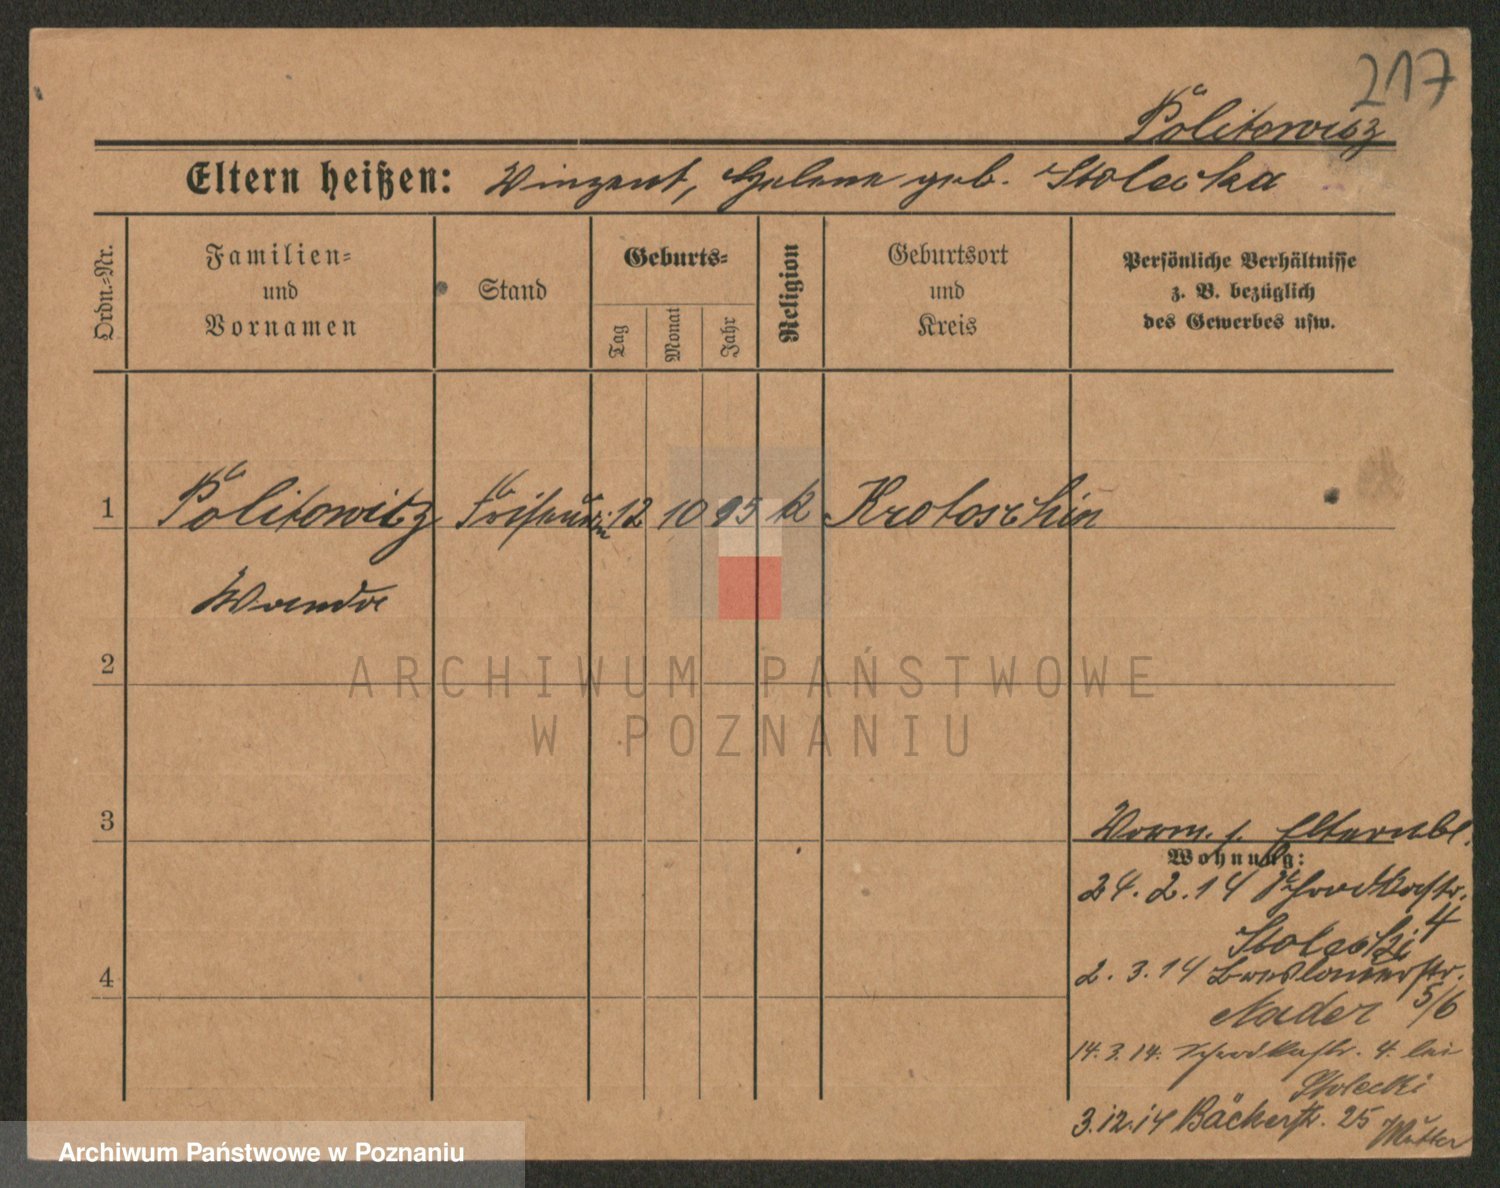 217
Politowicz
Eltern heißen: Winzent, Helene geb. Stolecka
Ordn.-Nr.
Familien-
und
Vornamen
Stand
Geburts-
Tag
Monat
Jahr
Religion
Geburtsort
und
Kreis
Persönliche Verhältnisse
z. B. bezüglich
des Gewerbes usw.
1 Politowitz Friseurin 12 10 95 k Krotoschin
Wanda
2
ARCHIWUM PAŃSTWOWE
W POZNANIU
3
Vorm. s. Elternbl.
Wohnung:
24. 2. 14 Schrodkastr.
4
Stolecki
4
2. 3. 14 Breslauerstr.
Nader 5/6
14. 3. 14. Schrodkastr. 4. bei
Stolecki
3.12.14 Bäckerstr. 25 Mutter
Archiwum Państwowe w Poznaniu